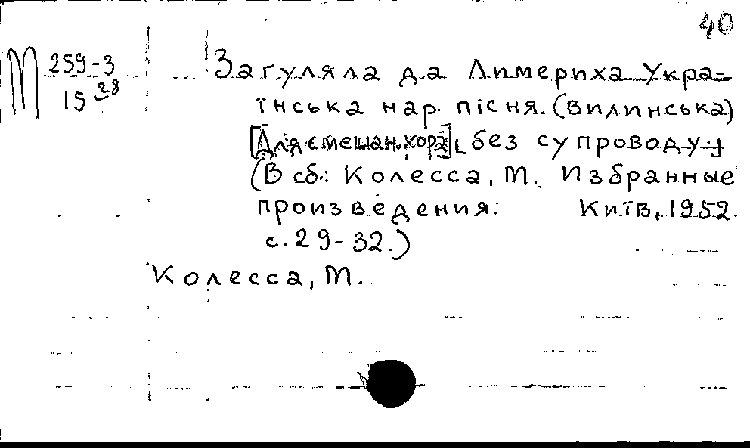 40
М 259-3
15 28
Загуляла да Лимериха Укра-
їнська нар. пісня. (Вилинська)
[Для смешан. хора], без супроводу.]
(В сб.: Колесса, М. Избранные
произведения. Київ, 1952.
с. 29-32.)
Колесса, М.